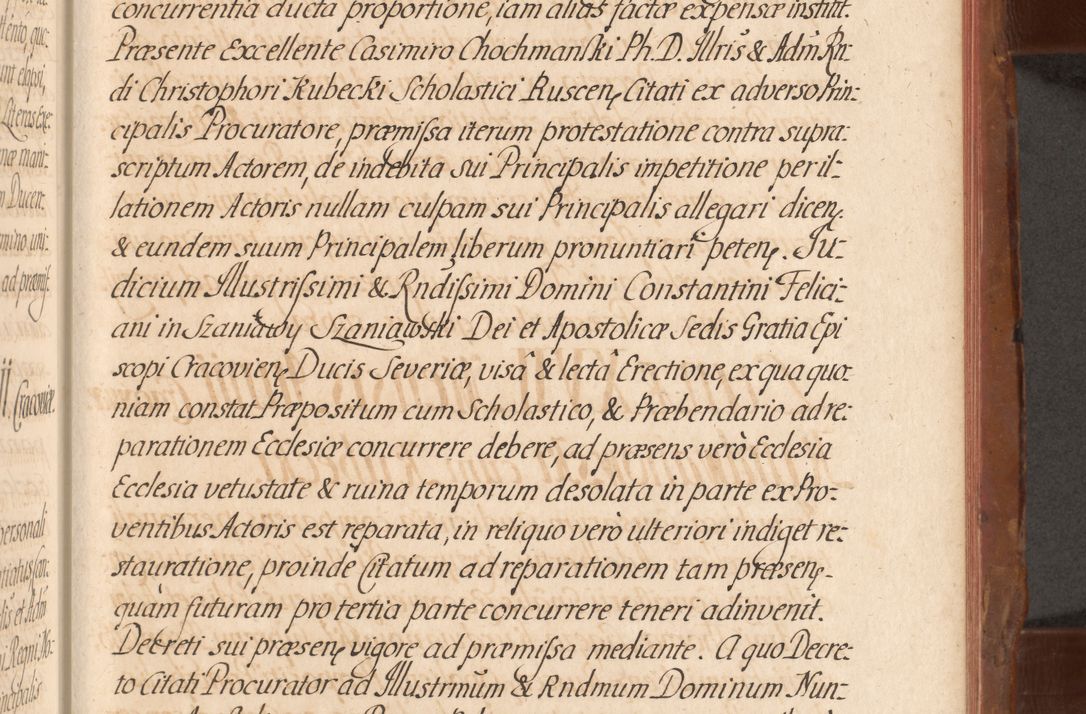 concurrentia ducta proportione, iam aliàs factæ expensæ instit:
Præsente Excellente Casimiro Chochmanſki Ph. D. Illris & Adm Rn:
di Christophori Kubecki Scholastici Ruscen, Citati ex adverso Prin:
cipalis Procuratore, præmiſsa iterum protestatione contra supra:
scriptum Actorem, de indebita sui Principalis impetitione per il:
lationem Actoris nullam culpam sui Principalis allegari dicen,
& eundem suum Principalem liberum pronuntiari peten. Iu:
dicium Illustriſsimi & Rndiſsimi Domini Constantini Felici:
ani in Szaniawy Szaniawski Dei et Apostolicæ Sedis Gratia Epi
scopi Cracovien, Ducis Severiæ, visâ & lectâ Erectione, ex qua quo:
niam constat Præpositum cum Scholastico, & Præbendario ad re:
parationem Ecclesiæ concurrere debere, ad præsens verò Ecclesia
Ecclesia vetustate & ruina temporum desolata in parte ex Pro:
ventibus Actoris est reparata, in reliquo verò ulteriori indiget re:
stauratione, proinde Citatum ad reparationem tam præsen,
quàm futuram pro tertia parte concurrere teneri adinvenit.
Decreti sui præsen, vigore ad præmiſsa mediante. A quo Decre:
to Citati Procurator ad Illustrmũm & Rndmum Dominum Nun: